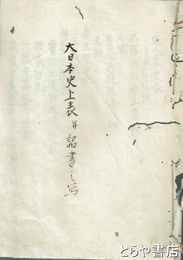 大日本史上表并詔書之写
とらや書店